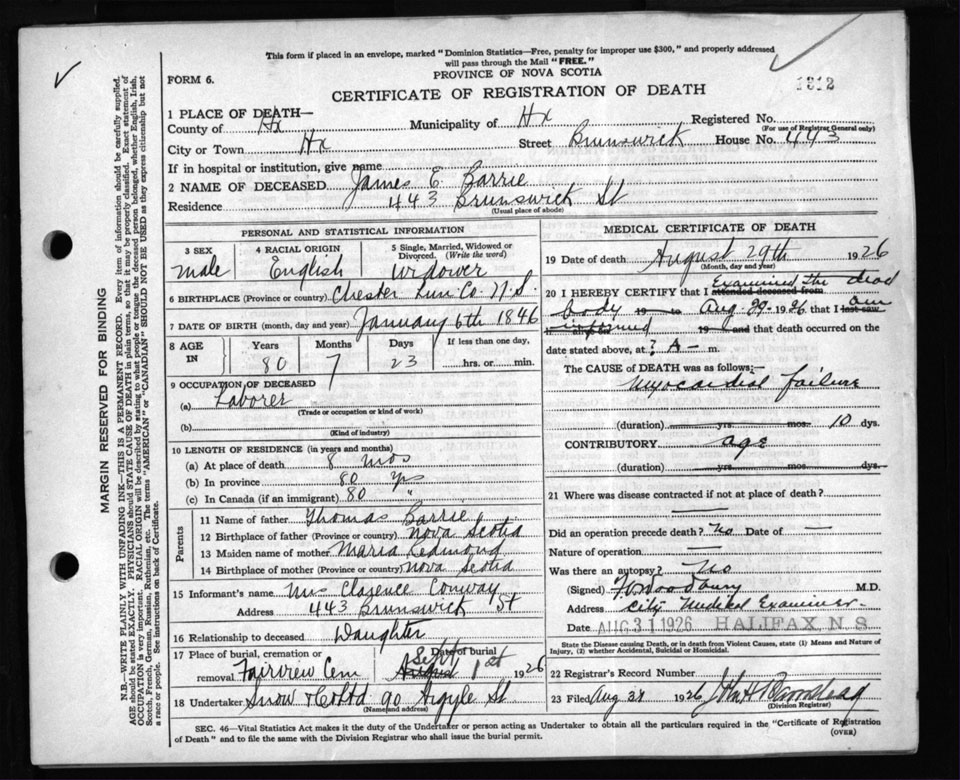 This form if placed in an envelope, marked "Dominion Statistics—Free, penalty for improper use $300," and properly addressed
will pass through the Mail "FREE."
PROVINCE OF NOVA SCOTIA
FORM 6.
1312
CERTIFICATE OF REGISTRATION OF DEATH
1 PLACE OF DEATH—
County of Hx Municipality of Hx Registered No.
(For use of Registrar General only)
City or Town Hx Street Brunswick House No. 443
If in hospital or institution, give name
2 NAME OF DECEASED James E Barrie
Residence 443 Brunswick St
(Usual place of abode)
PERSONAL AND STATISTICAL INFORMATION
3 SEX 4 RACIAL ORIGIN 5 Single, Married, Widowed or
Divorced. (Write the word)
male English widower
6 BIRTHPLACE (Province or country) Chester Lun. Co. N.S.
7 DATE OF BIRTH (month, day and year) January 6th 1846
8 AGE IN Years Months Days If less than one day,
80 7 23 hrs. or min.
9 OCCUPATION OF DECEASED
(a) Laborer
(Trade or occupation or kind of work)
(b)
(Kind of industry)
10 LENGTH OF RESIDENCE (in years and months)
(a) At place of death 8 mos
(b) In province 80 yrs
(c) In Canada (if an immigrant) 80 "
Parents
11 Name of father Thomas Barrie
12 Birthplace of father (Province or country) Nova Scotia
13 Maiden name of mother Maria Redmond
14 Birthplace of mother (Province or country) Nova Scotia
15 Informant's name Mrs Clarence Conway
Address 443 Brunswick St
16 Relationship to deceased Daughter
17 Place of burial, cremation or Date of burial
removal Fairview Cem Sept August 1st 1926
18 Undertaker Snow & Co Ltd 90 Argyle St
(Name and address)
MEDICAL CERTIFICATE OF DEATH
19 Date of death August 29th 1926
(Month, day and year)
20 I HEREBY CERTIFY that I Examined the dead
attended deceased from
body 19 to Aug 29 1926 that I last saw am
informed 19 and that death occurred on
date stated above, at ? A— m.
The CAUSE OF DEATH was as follows:—
Myocardial failure
(duration) yrs. mos. 10 dys.
CONTRIBUTORY age
(duration) yrs. mos. dys.
21 Where was disease contracted if not at place of death?
Did an operation precede death? No Date of —
Nature of operation —
Was there an autopsy? No
(Signed) Woodbury M.D.
Address City Medical Examiner
Date AUG 31 1926 HALIFAX, N. S.
State the Disease causing Death, or in death from Violent Causes, state (1) Means and Nature of
Injury, (2) whether Accidental, Suicidal or Homicidal.
22 Registrar's Record Number
23 Filed Aug 31 1926
(Division Registrar)
SEC. 46—Vital Statistics Act makes it the duty of the Undertaker or person acting as Undertaker to obtain all the particulars required in the "Certificate of Registration
of Death" and to file the same with the Division Registrar who shall issue the burial permit.
(OVER)
MARGIN RESERVED FOR BINDING
N.B.—WRITE PLAINLY WITH UNFADING INK—THIS IS A PERMANENT RECORD. Every item of information should be carefully supplied.
AGE should be stated EXACTLY. PHYSICIANS should STATE CAUSE OF DEATH in plain terms, so that it may be properly classified. Exact statement of
OCCUPATION is very important. RACIAL ORIGIN will be described by stating to what people or tongue the deceased person belonged, whether English, Irish,
Scotch, French, German, Russian, Ruthenian, etc. The terms "AMERICAN" or "CANADIAN" SHOULD NOT BE USED as they express citizenship but not
a race or people. See instructions on back of Certificate.